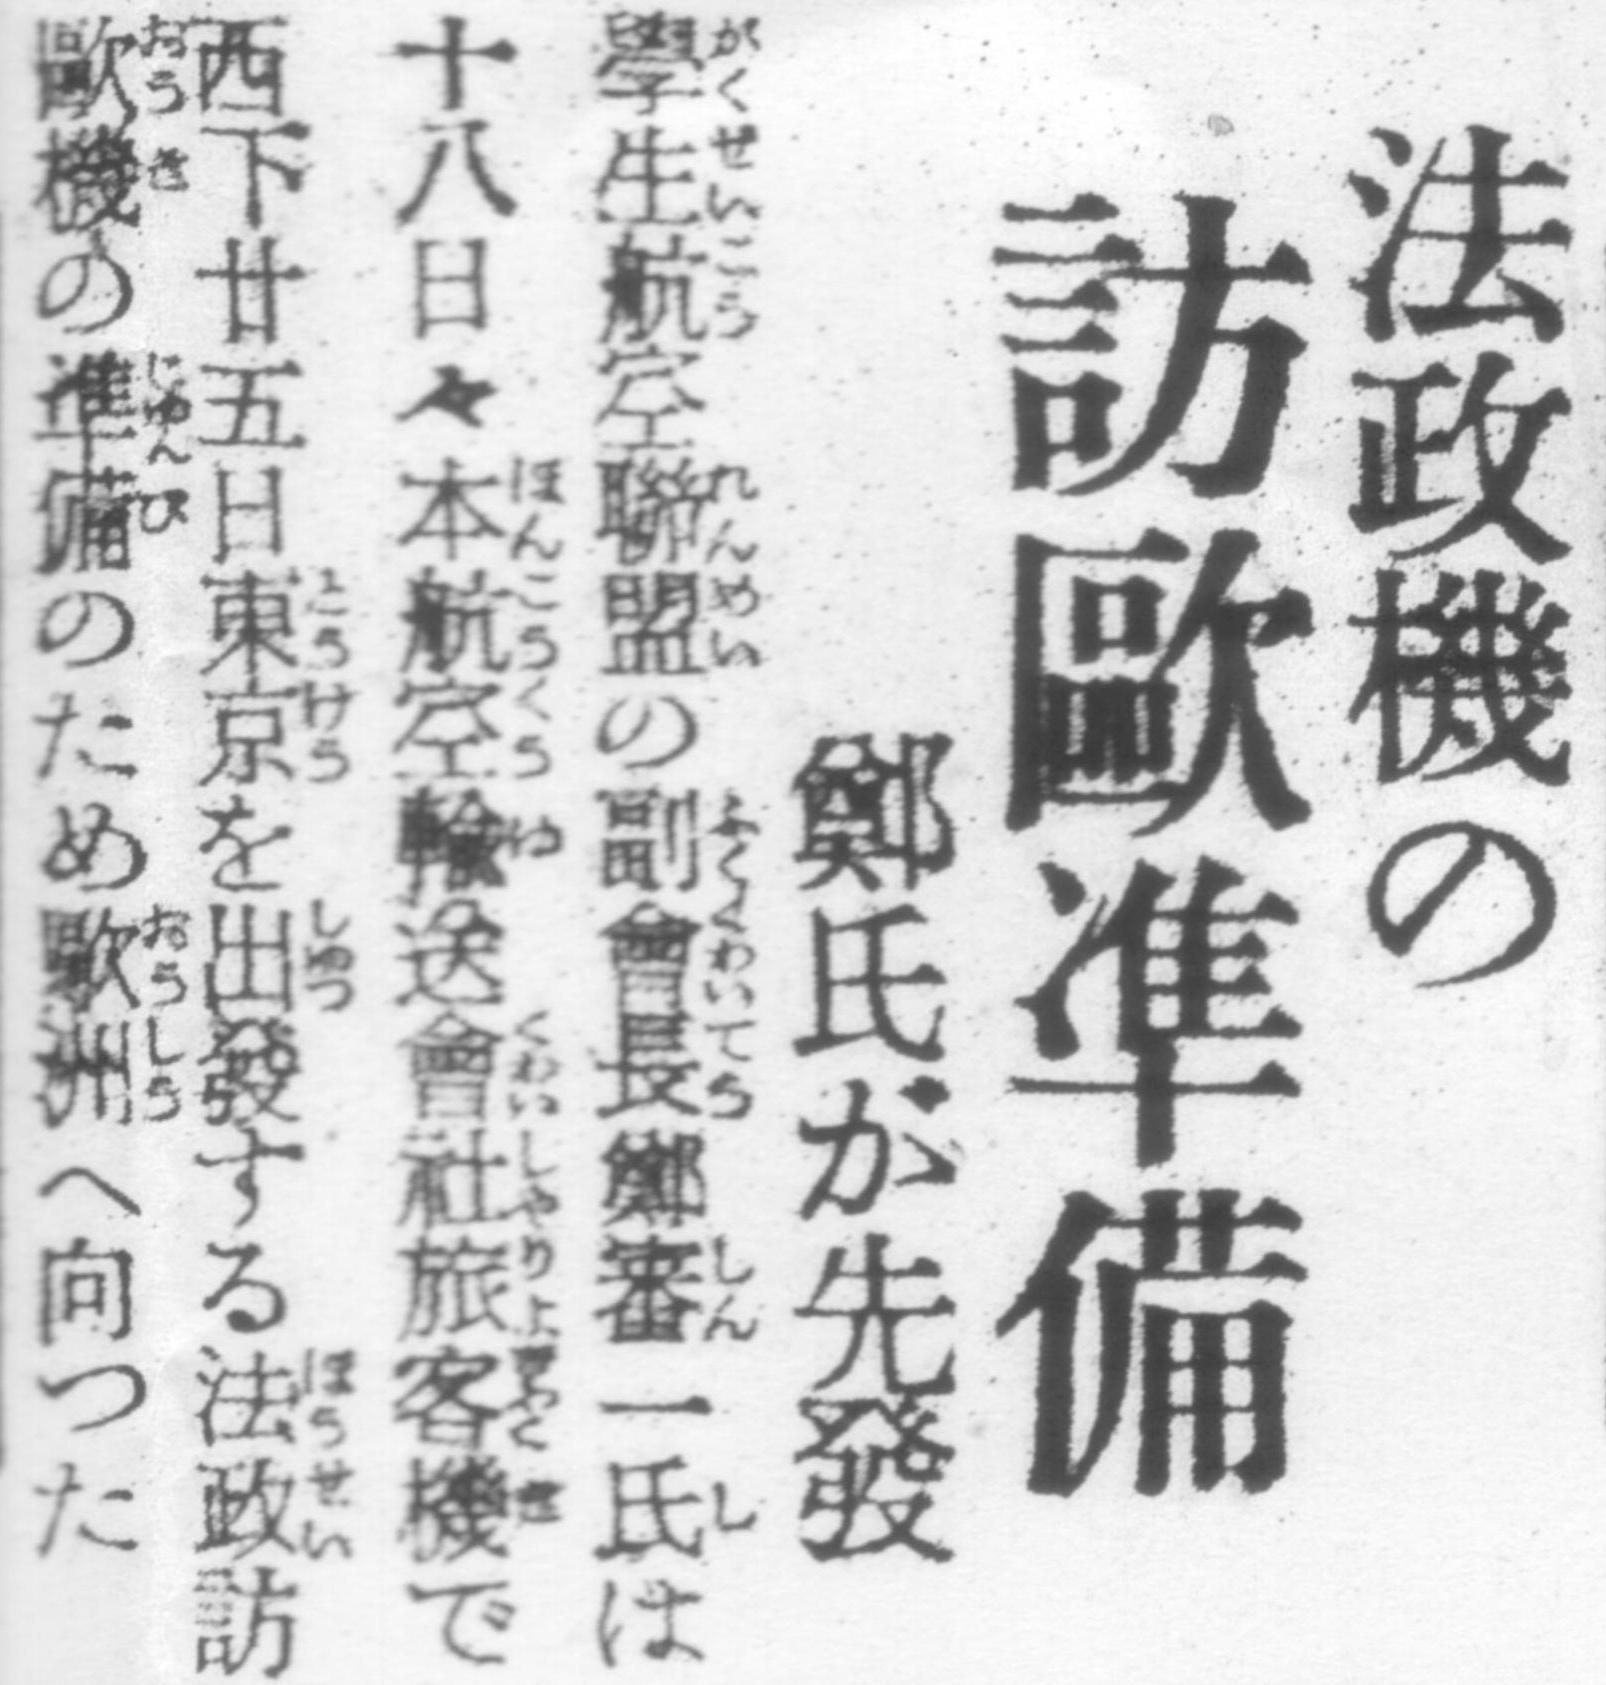 法政機の
訪歐准備
鄭氏が先發
學生航空聯盟の副會長鄭審一氏は
十八日々本航空輸送會社旅客機で
西下廿五日東京を出發する法政訪
歐機の準備のため歐洲へ向つた